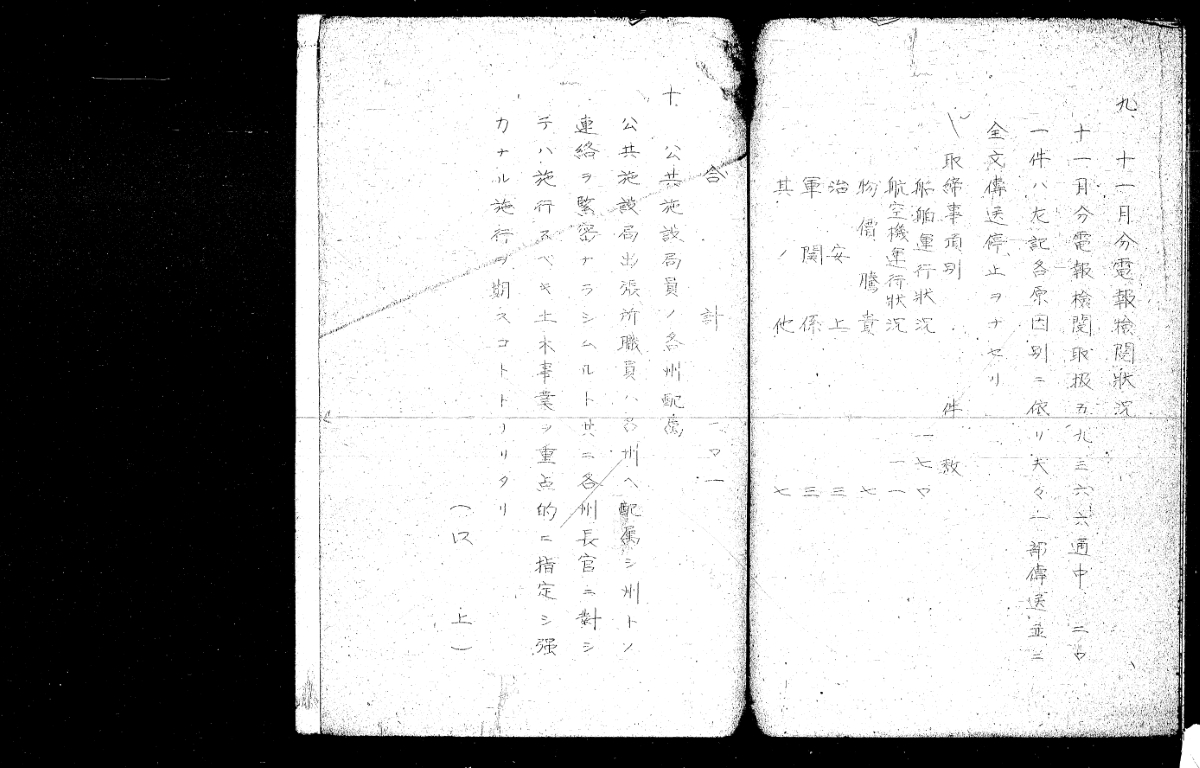 九、十一月分電報検閲状況
十一月分電報検閲取扱五九三六六通中二〇
一件ハ左記各原因別ニ依リ夫々一部傳送並ニ
全文傳送停止ヲナセリ
取締事項別 件数
船舶運行状況 一七〇
航空機運行状況 一一
物價騰貴 七
治安上 三
軍関係 三
其ノ他 七
合計 二〇一
十、公共施設局員ノ各州配属
公共施設局出張所職員ハ各州ヘ配属シ州トノ
連絡ヲ緊密ナラシムルト共ニ各州長官ニ對シ
テハ施行スベキ土木事業ヲ重点的ニ指定シ强
力ナル施行ヲ期スコトトナリタリ
(以上)